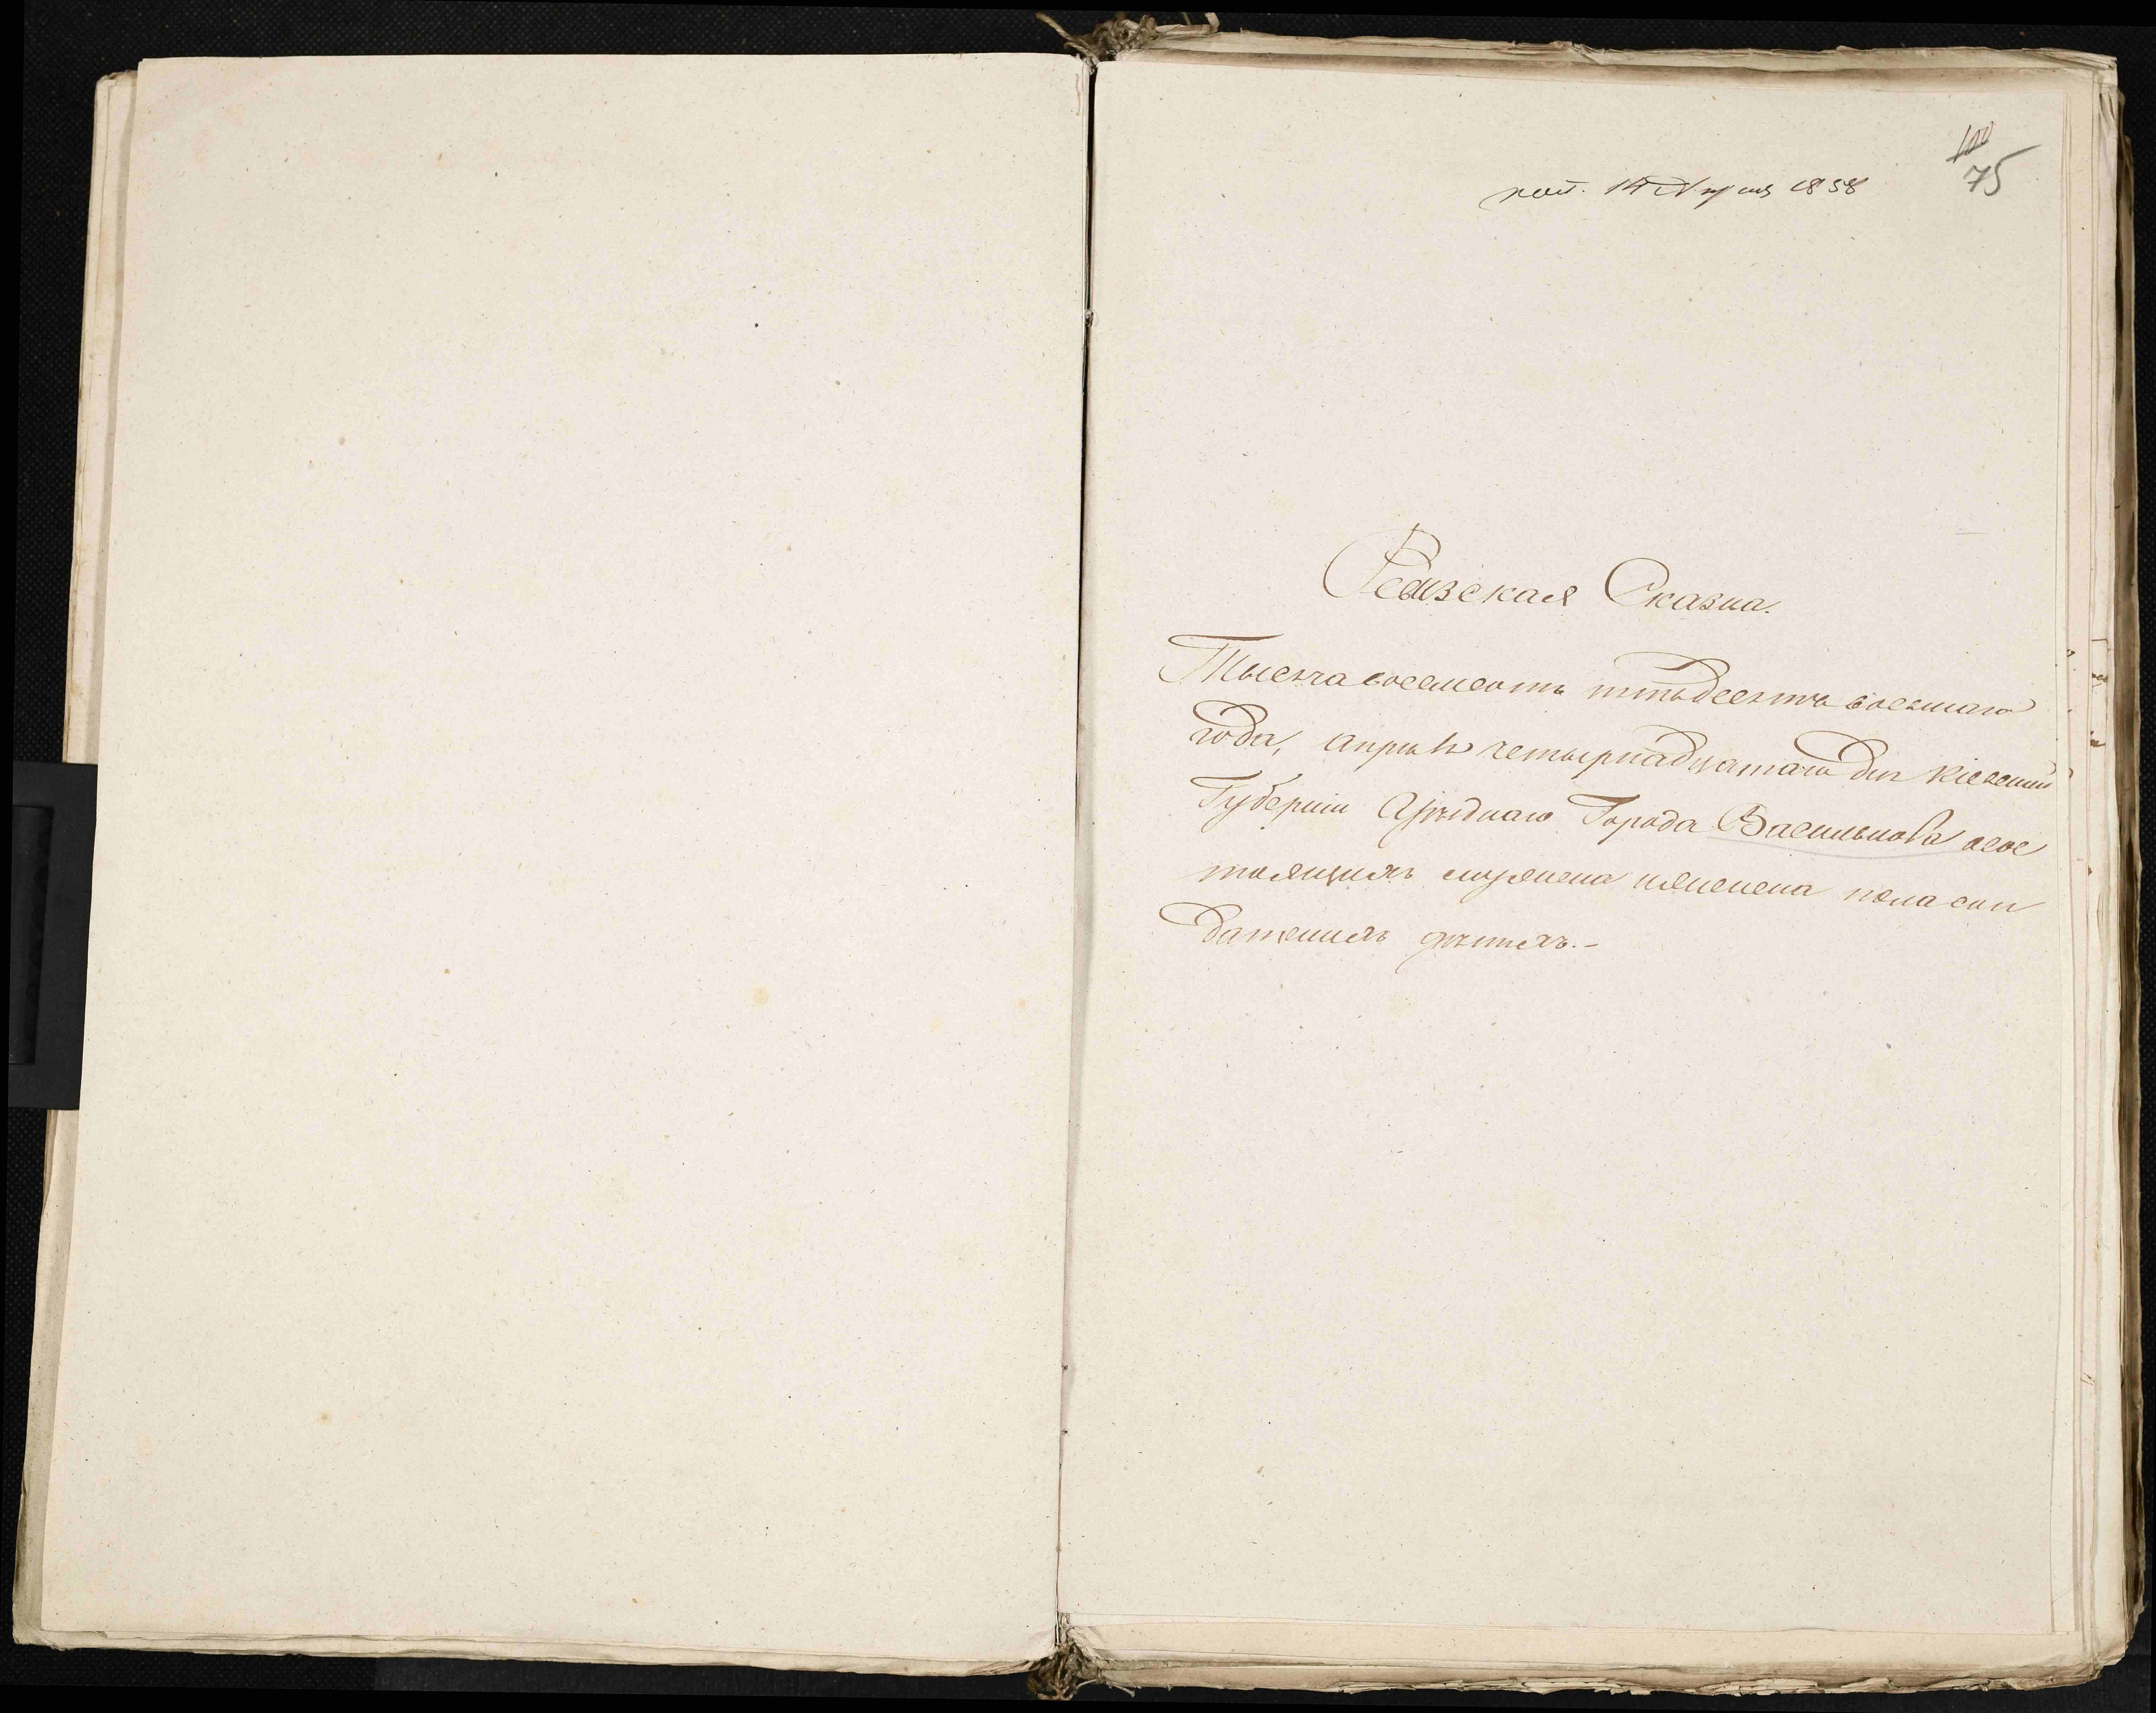 100
75
пол. 14 Апреля 1858
Ревизская Сказка.
Тысеча восемсотъ пятьдесятъ восмаго
года, апреля четырнадцатаго дня Кіевской
Губерніи Уѣзднаго Города Василькова о сос
тоящихъ мужеска и женска пола сол
датскихъ дѣтяхъ.-